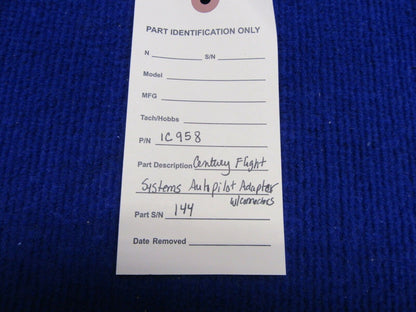 PART IDENTIFICATION ONLY
N S/N
Model
MFG
Tach/Hobbs
P/N 1C958
Part Description Century Flight
Systems Autopilot Adapter
w/connectors
Part S/N 144
Date Removed